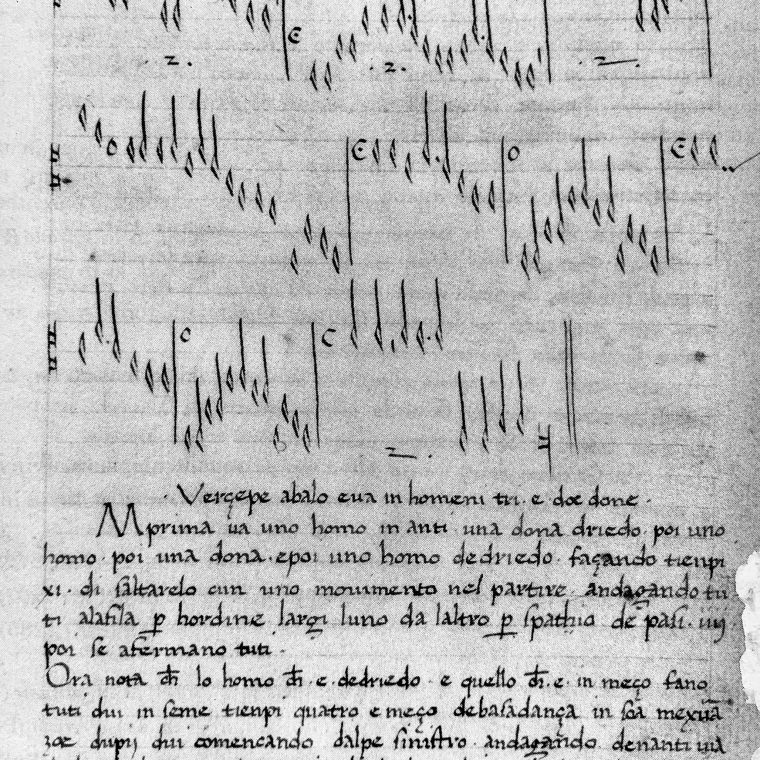 Verçepe abalo eua in homeni tri · e doe done ·
Mprima ua uno homo in anti · una dona driedo · poi uno
homo · poi una dona · epoi uno homo dedriedo · façando tienpi
xi · di saltarelo cun uno mouimento nel partire · andagando tu
ti alafila p hordine largi luno da laltro p spathio de pasi · iiij ·
poi se afermano tuti ·
Ora nota ch lo homo ch · e · dedriedo · e quello ch · e · in meço fano
tuti dui in seme tienpi quatro e meço debasadança in soa mexura
zoe dupij dui comencando dalpe sinistro · andagando denanti